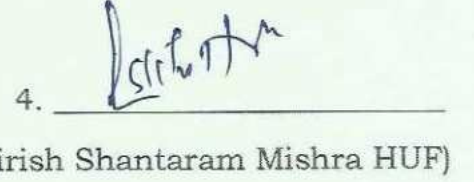 4.
irish Shantaram Mishra HUF)